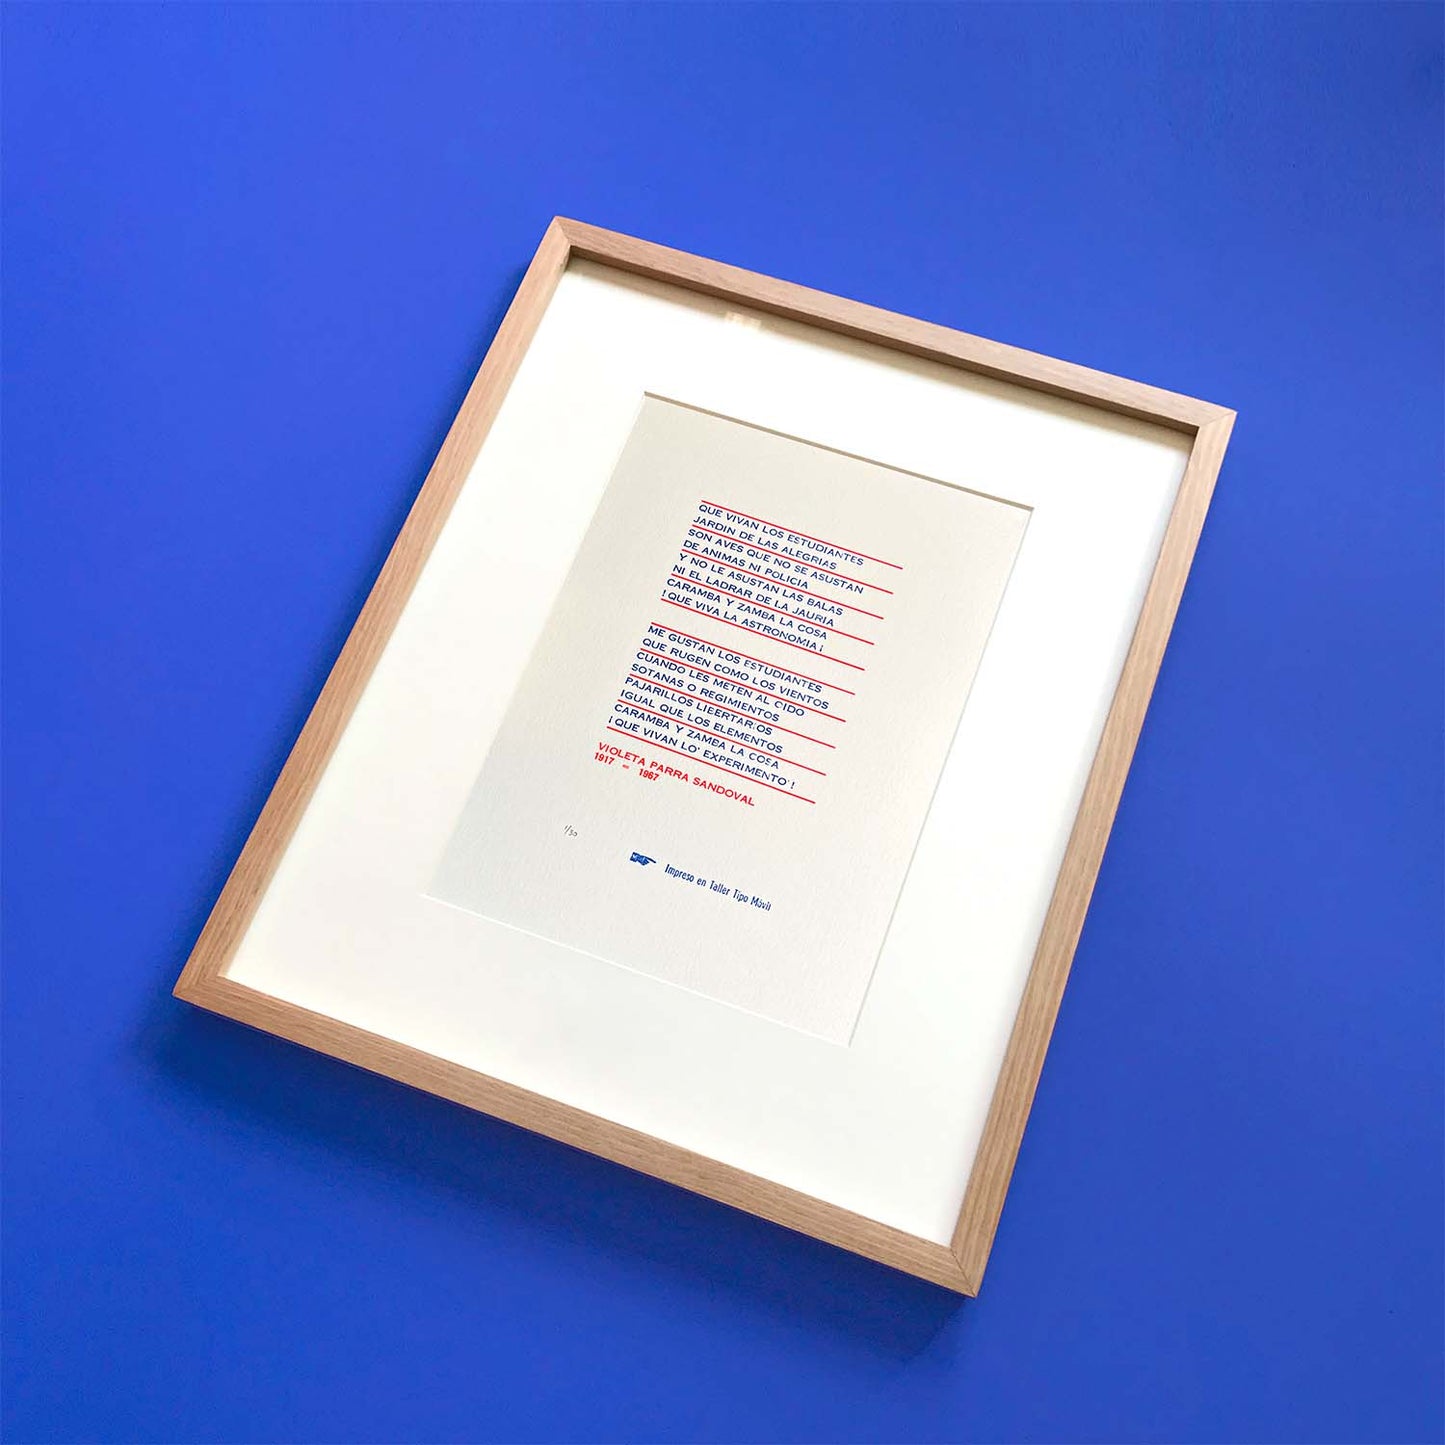 QUE VIVAN LOS ESTUDIANTES
JARDIN DE LAS ALEGRIAS
SON AVES QUE NO SE ASUSTAN
DE ANIMAS NI POLICIA
Y NO LE ASUSTAN LAS BALAS
NI EL LADRAR DE LA JAURIA
CARAMBA Y ZAMBA LA COSA
! QUE VIVA LA ASTRONOMIA ¡
ME GUSTAN LOS ESTUDIANTES
QUE RUGEN COMO LOS VIENTOS
CUANDO LES METEN AL OIDO
SOTANAS O REGIMIENTOS
PAJARILLOS LIBERTARIOS
IGUAL QUE LOS ELEMENTOS
CARAMBA Y ZAMBA LA COSA
¡ QUE VIVAN LO' EXPERIMENTO' !
VIOLETA PARRA SANDOVAL
1917 – 1967
1/30
Impreso en Taller Tipo Móvil